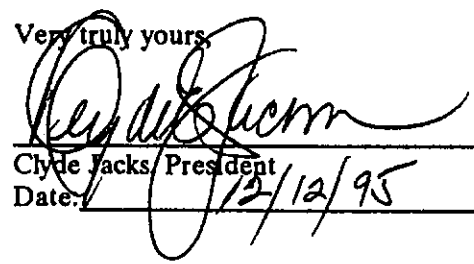 Very truly yours,
Clyde Jacks, President
Date: 12/12/95